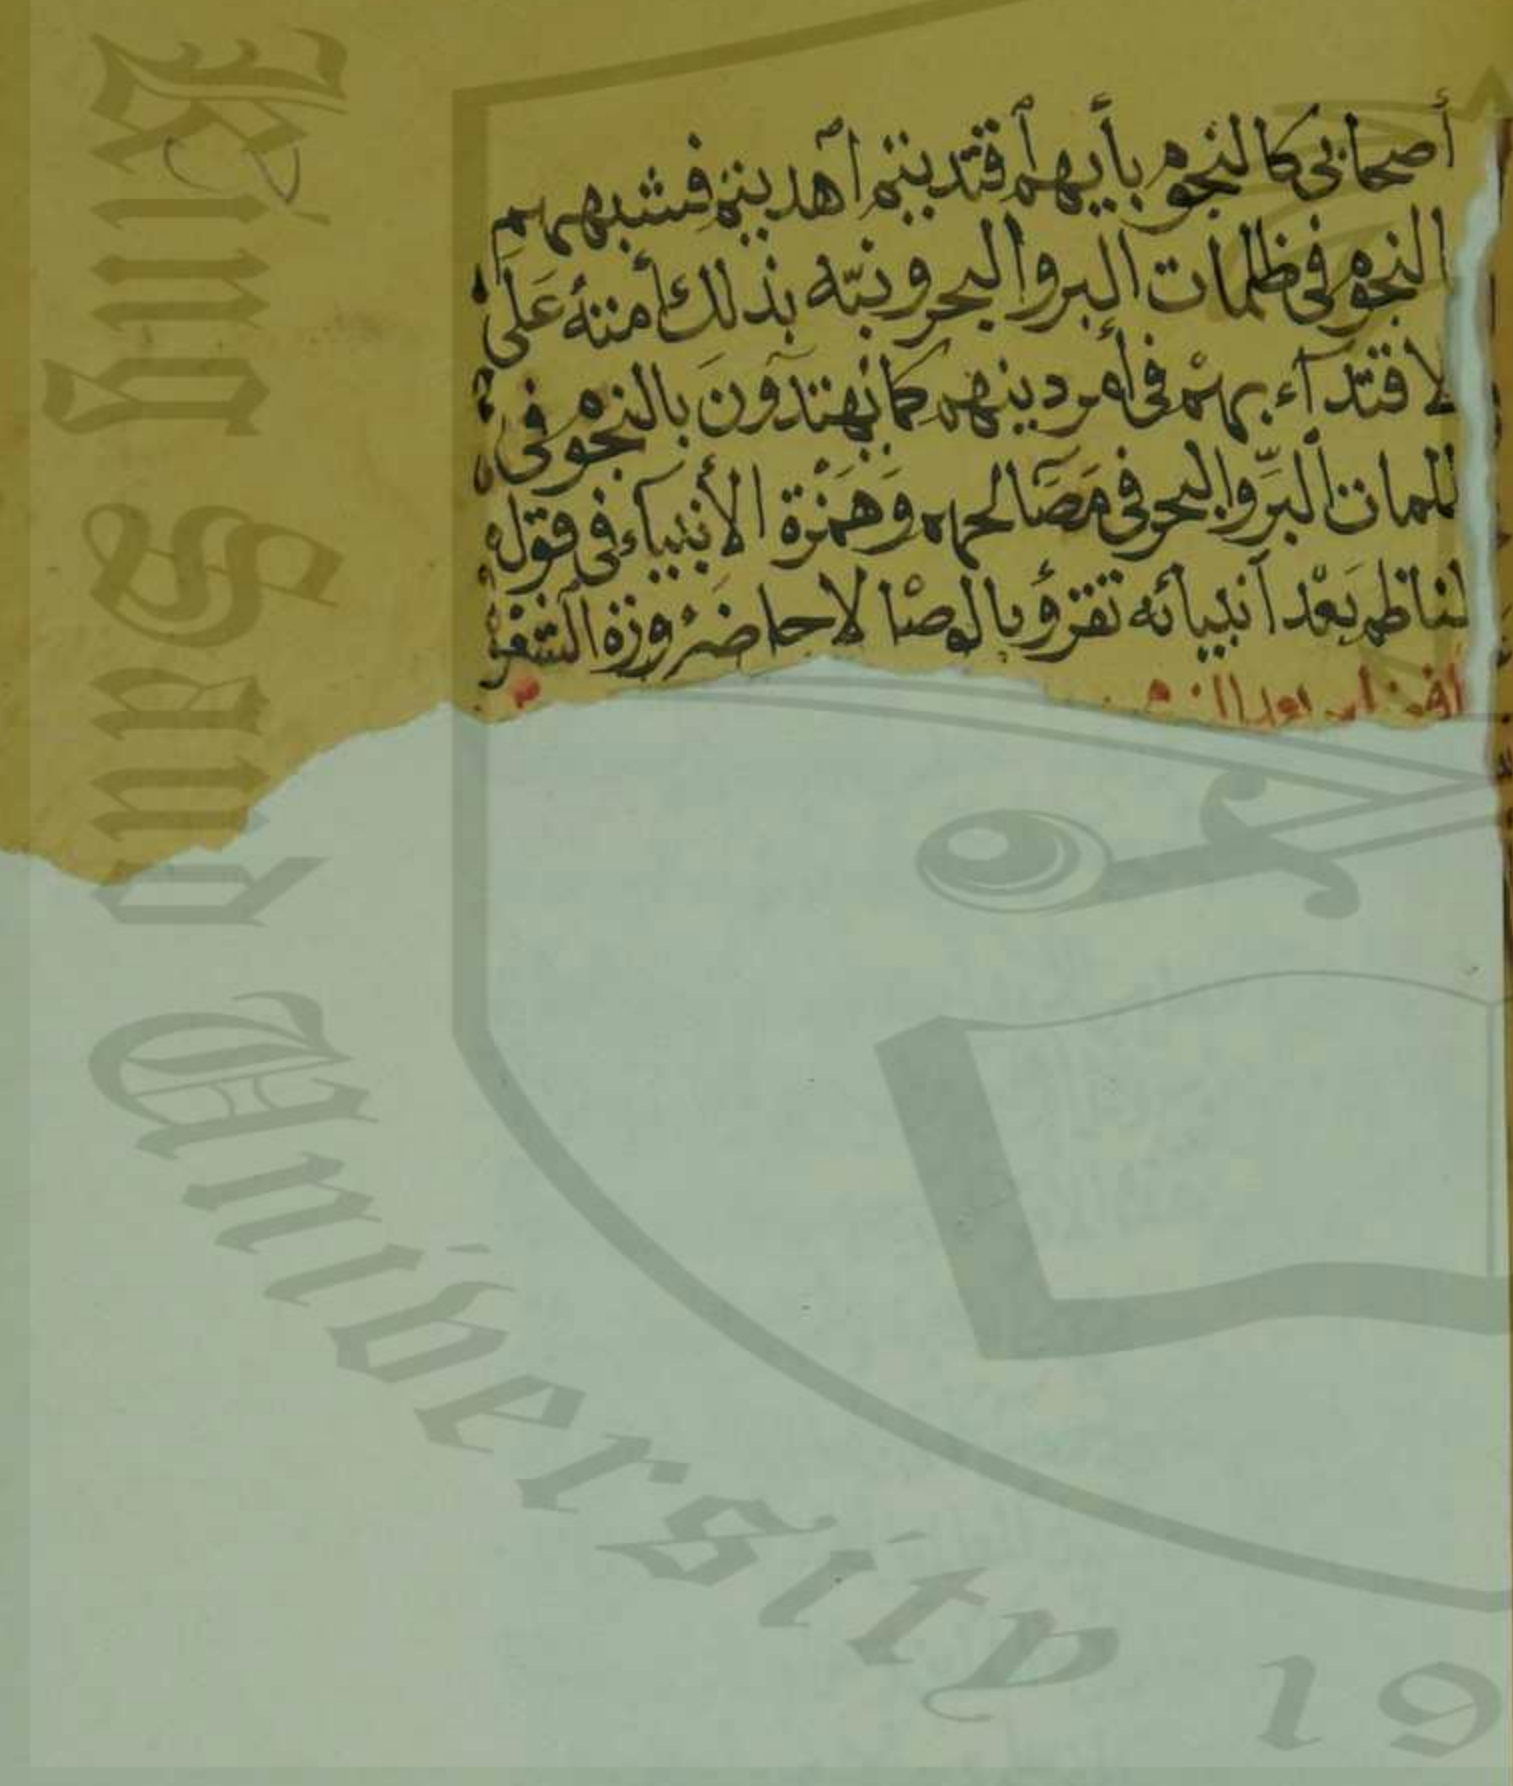 أصحابي كالنجوم بأيهم اقتديتم اهديتم فشبههم
النجوم في ظلمات البر والبحر ونبّه بذلك أمته عَلَى
لاقتدآء بهم في أمر دينهم كما يهتدون بالنجوم في
لمات البرّ والبحر في مَصَالحهم وَهَمْزة الأنبيآء في قوله
لناظم بَعْد أنبيائه تقرؤ بالوصْل لاجل ضرورة الشعر
King Saud University 19